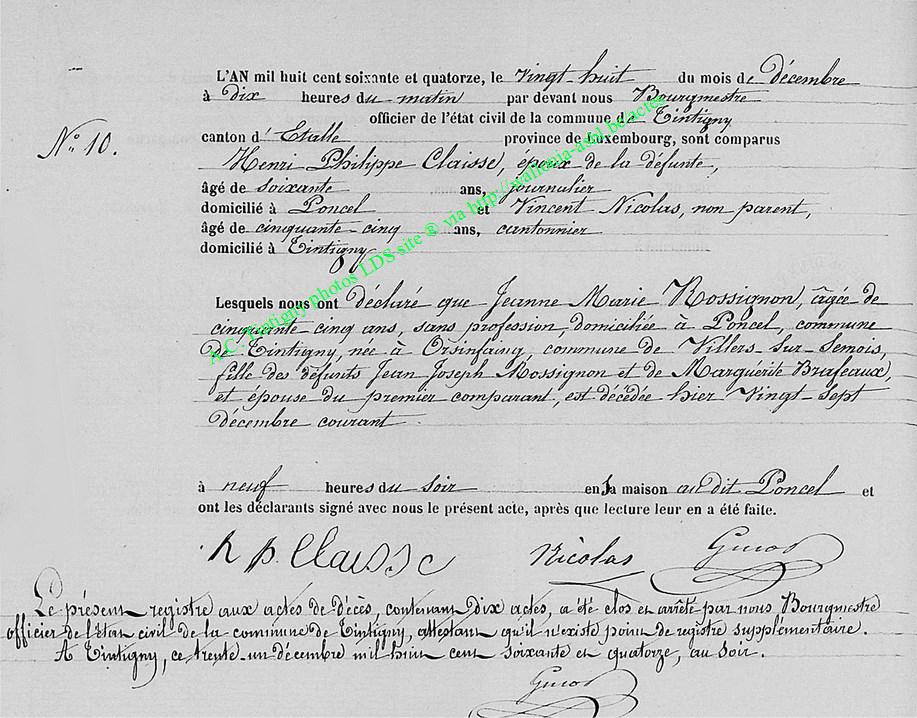 L'AN mil huit cent soixante et quatorze, le vingt huit du mois de décembre
à dix heures du matin par devant nous Bourgmestre
officier de l'état civil de la commune de Tintigny
N° 10.
canton d'Etalle province de Luxembourg, sont comparus
Henri Philippe Claisse, époux de la défunte,
âgé de soixante ans, journalier
domicilié à Poncel et Vincent Nicolas, non parent,
âgé de cinquante-cinq ans, cantonnier
domicilié à Tintigny
A.C. Tintigny photos LDS site ® via http://wallonia-asbl.be/actes
Lesquels nous ont déclaré que Jeanne Marie Rossignon, âgée de
cinquante cinq ans, sans profession, domiciliée à Poncel, commune
de Tintigny, née à Orsinfaing, commune de Villers-sur-Semois,
fille des défunts Jean Joseph Rossignon et de Marguerite
et épouse du premier comparant, est décédée hier Vingt-sept
décembre courant
à neuf heures du soir en sa maison au dit Poncel et
ont les déclarants signé avec nous le présent acte, après que lecture leur en a été faite.
h p Claisse Nicolas
Le présent registre aux actes de décès, contenant dix actes, a été clos et arrêté par nous Bourgmestre
officier de l'état civil de la commune de Tintigny, attestant qu'il n'existe point de registre supplémentaire.
A Tintigny, ce trente un décembre mil huit cent soixante et quatorze, au soir.